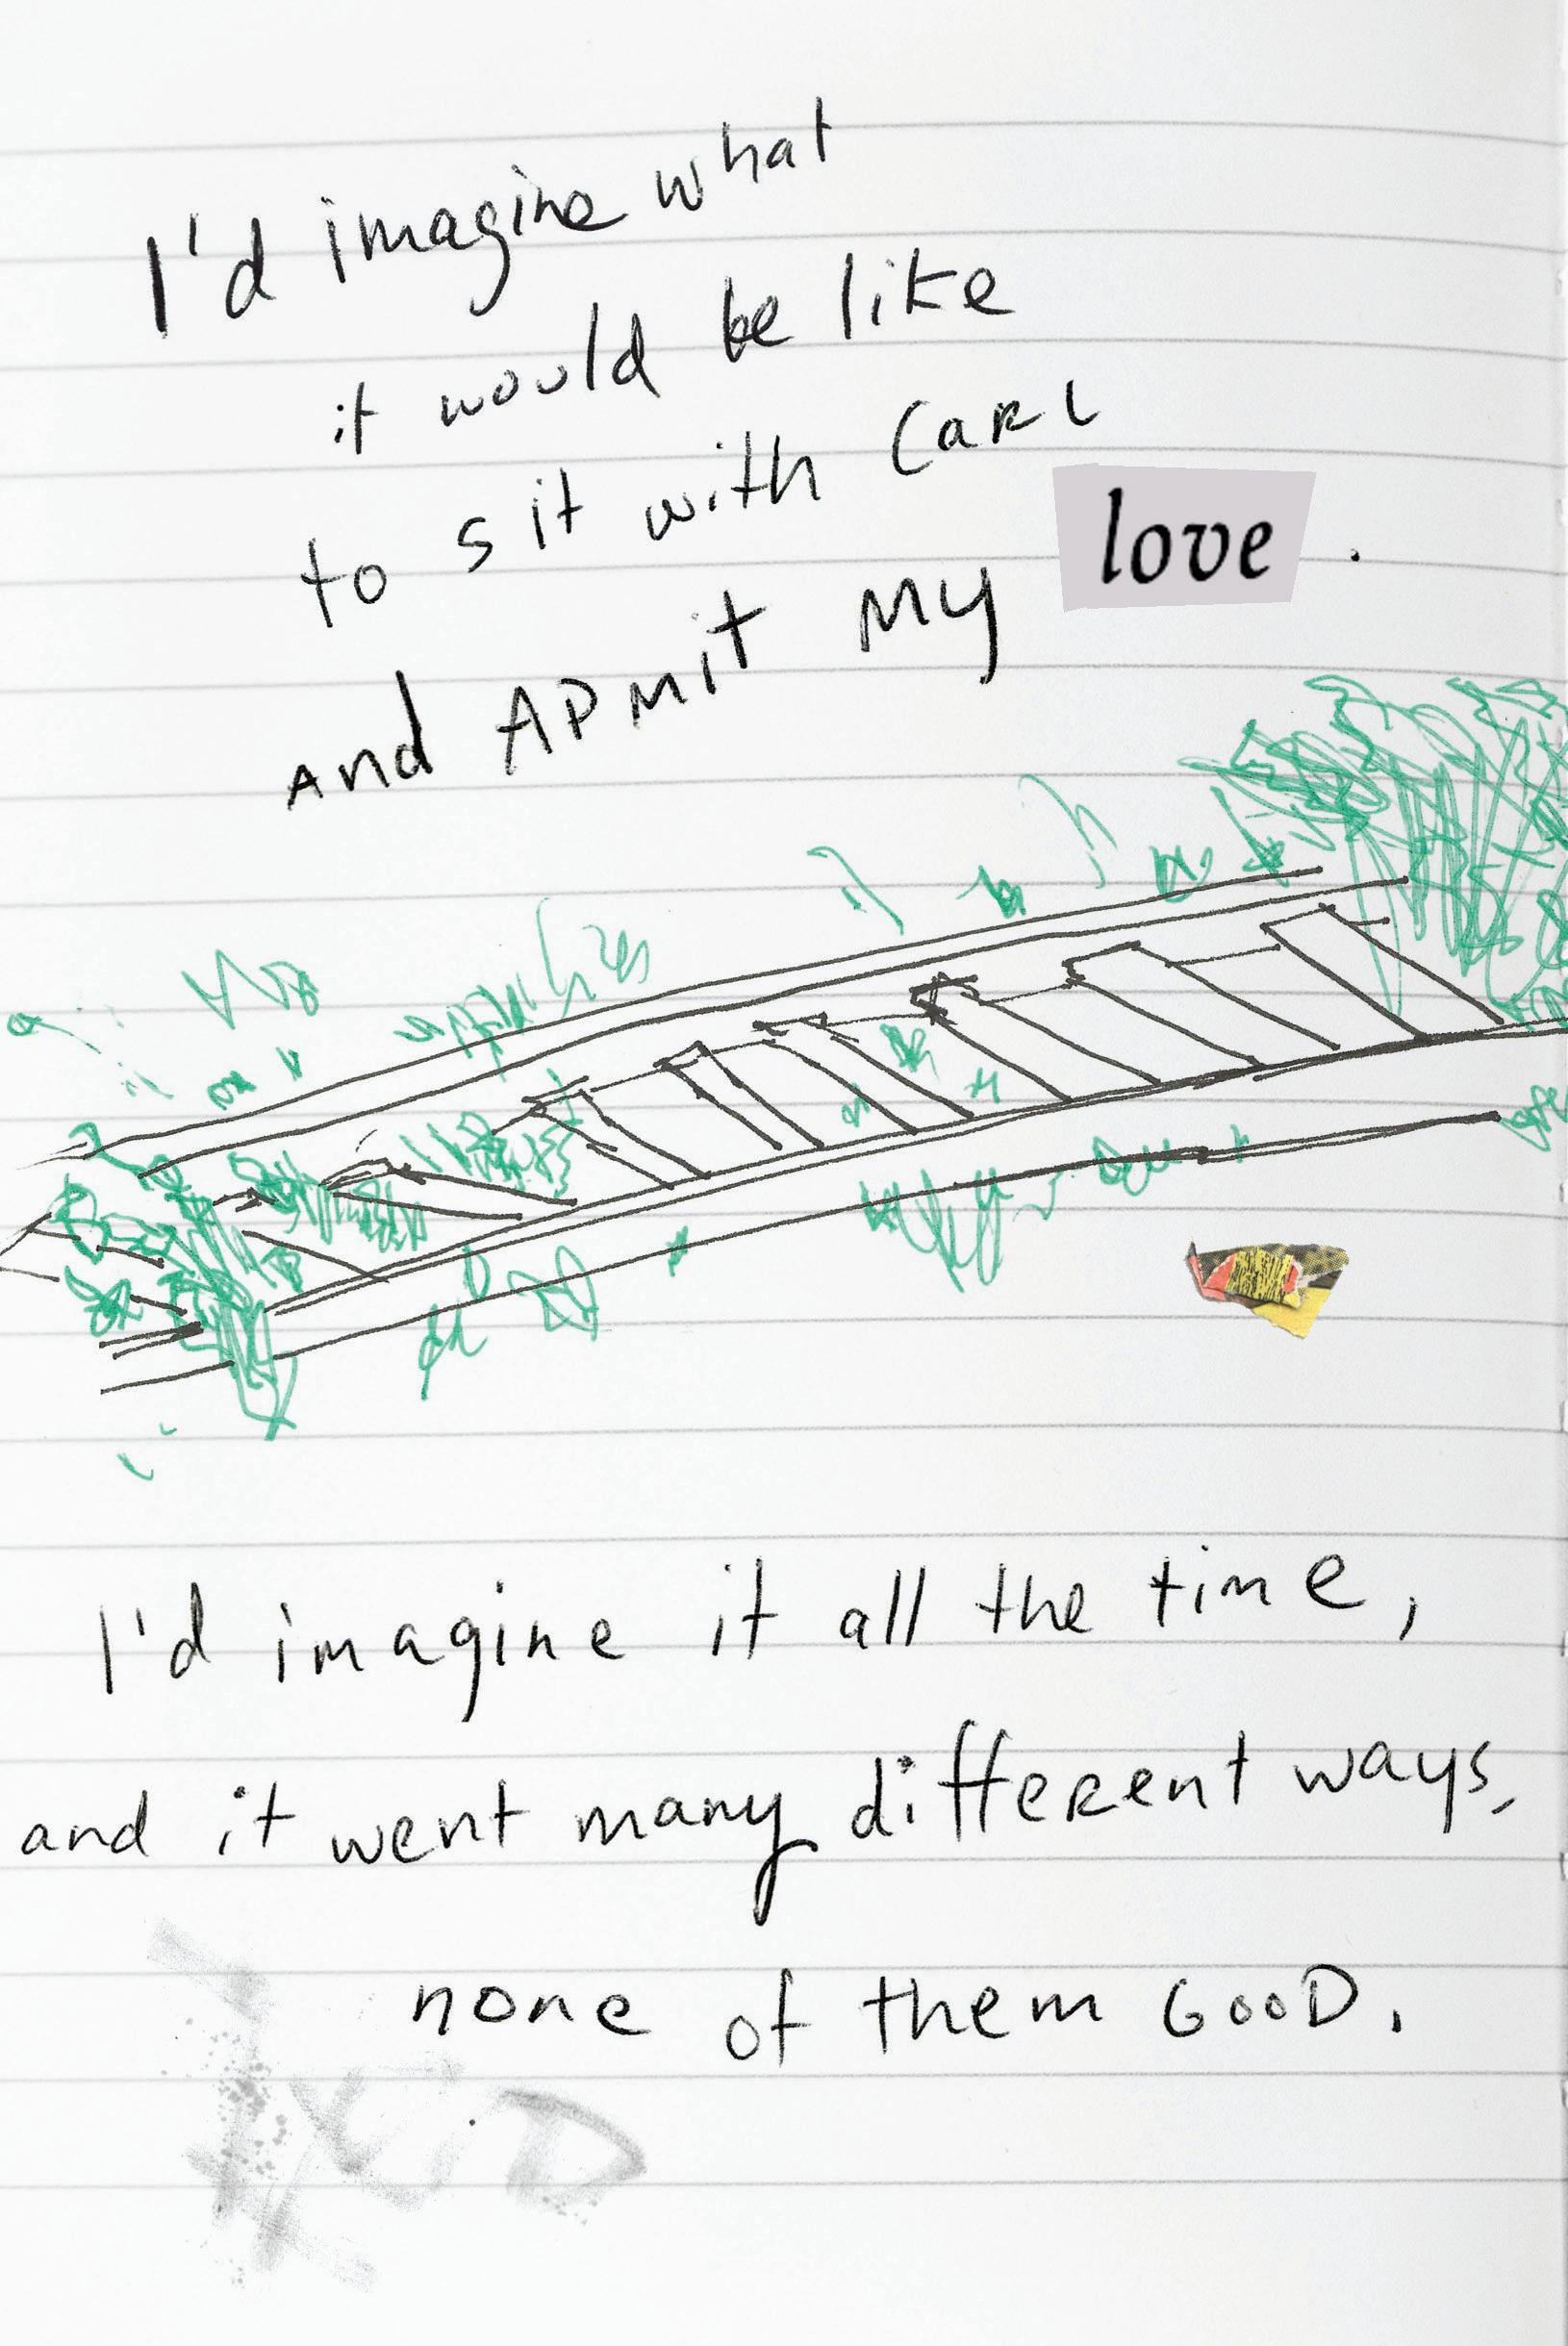 I'd imagine what
it would be like
to sit with CARL
And ADMit My love.
I'd imagine it all the time,
and it went many different ways,
none of them GOOD.